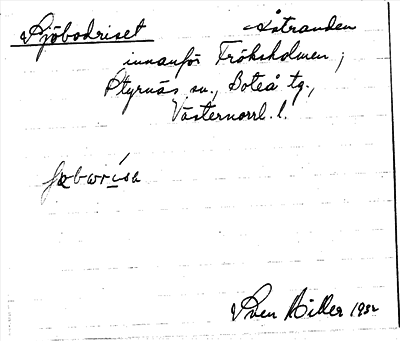 Sjöbodriset Åstranden
innanför Fröksholmen,
Styrnäs sn., Boteå tg.,
Västernorrl. l.
Sven Miller 1932